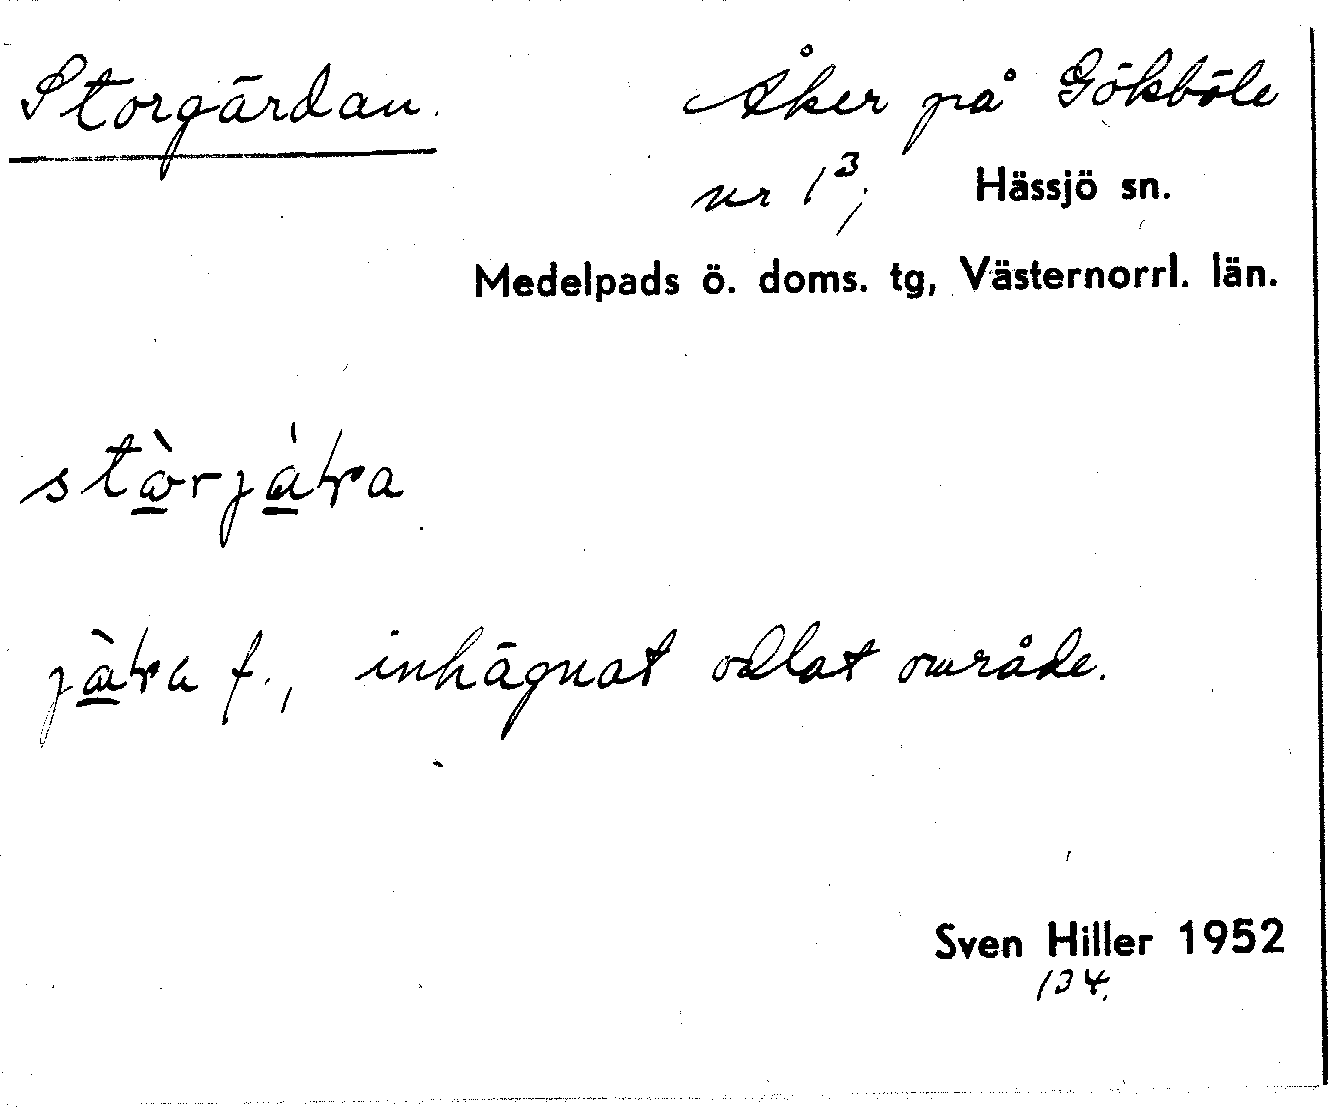 Storgärdan. Åker på Gökböle
nr 1³, Hässjö sn.
Medelpads ö. doms. tg, Västernorrl. län.
f., inhägnat odlat område.
Sven Hiller 1952
134.